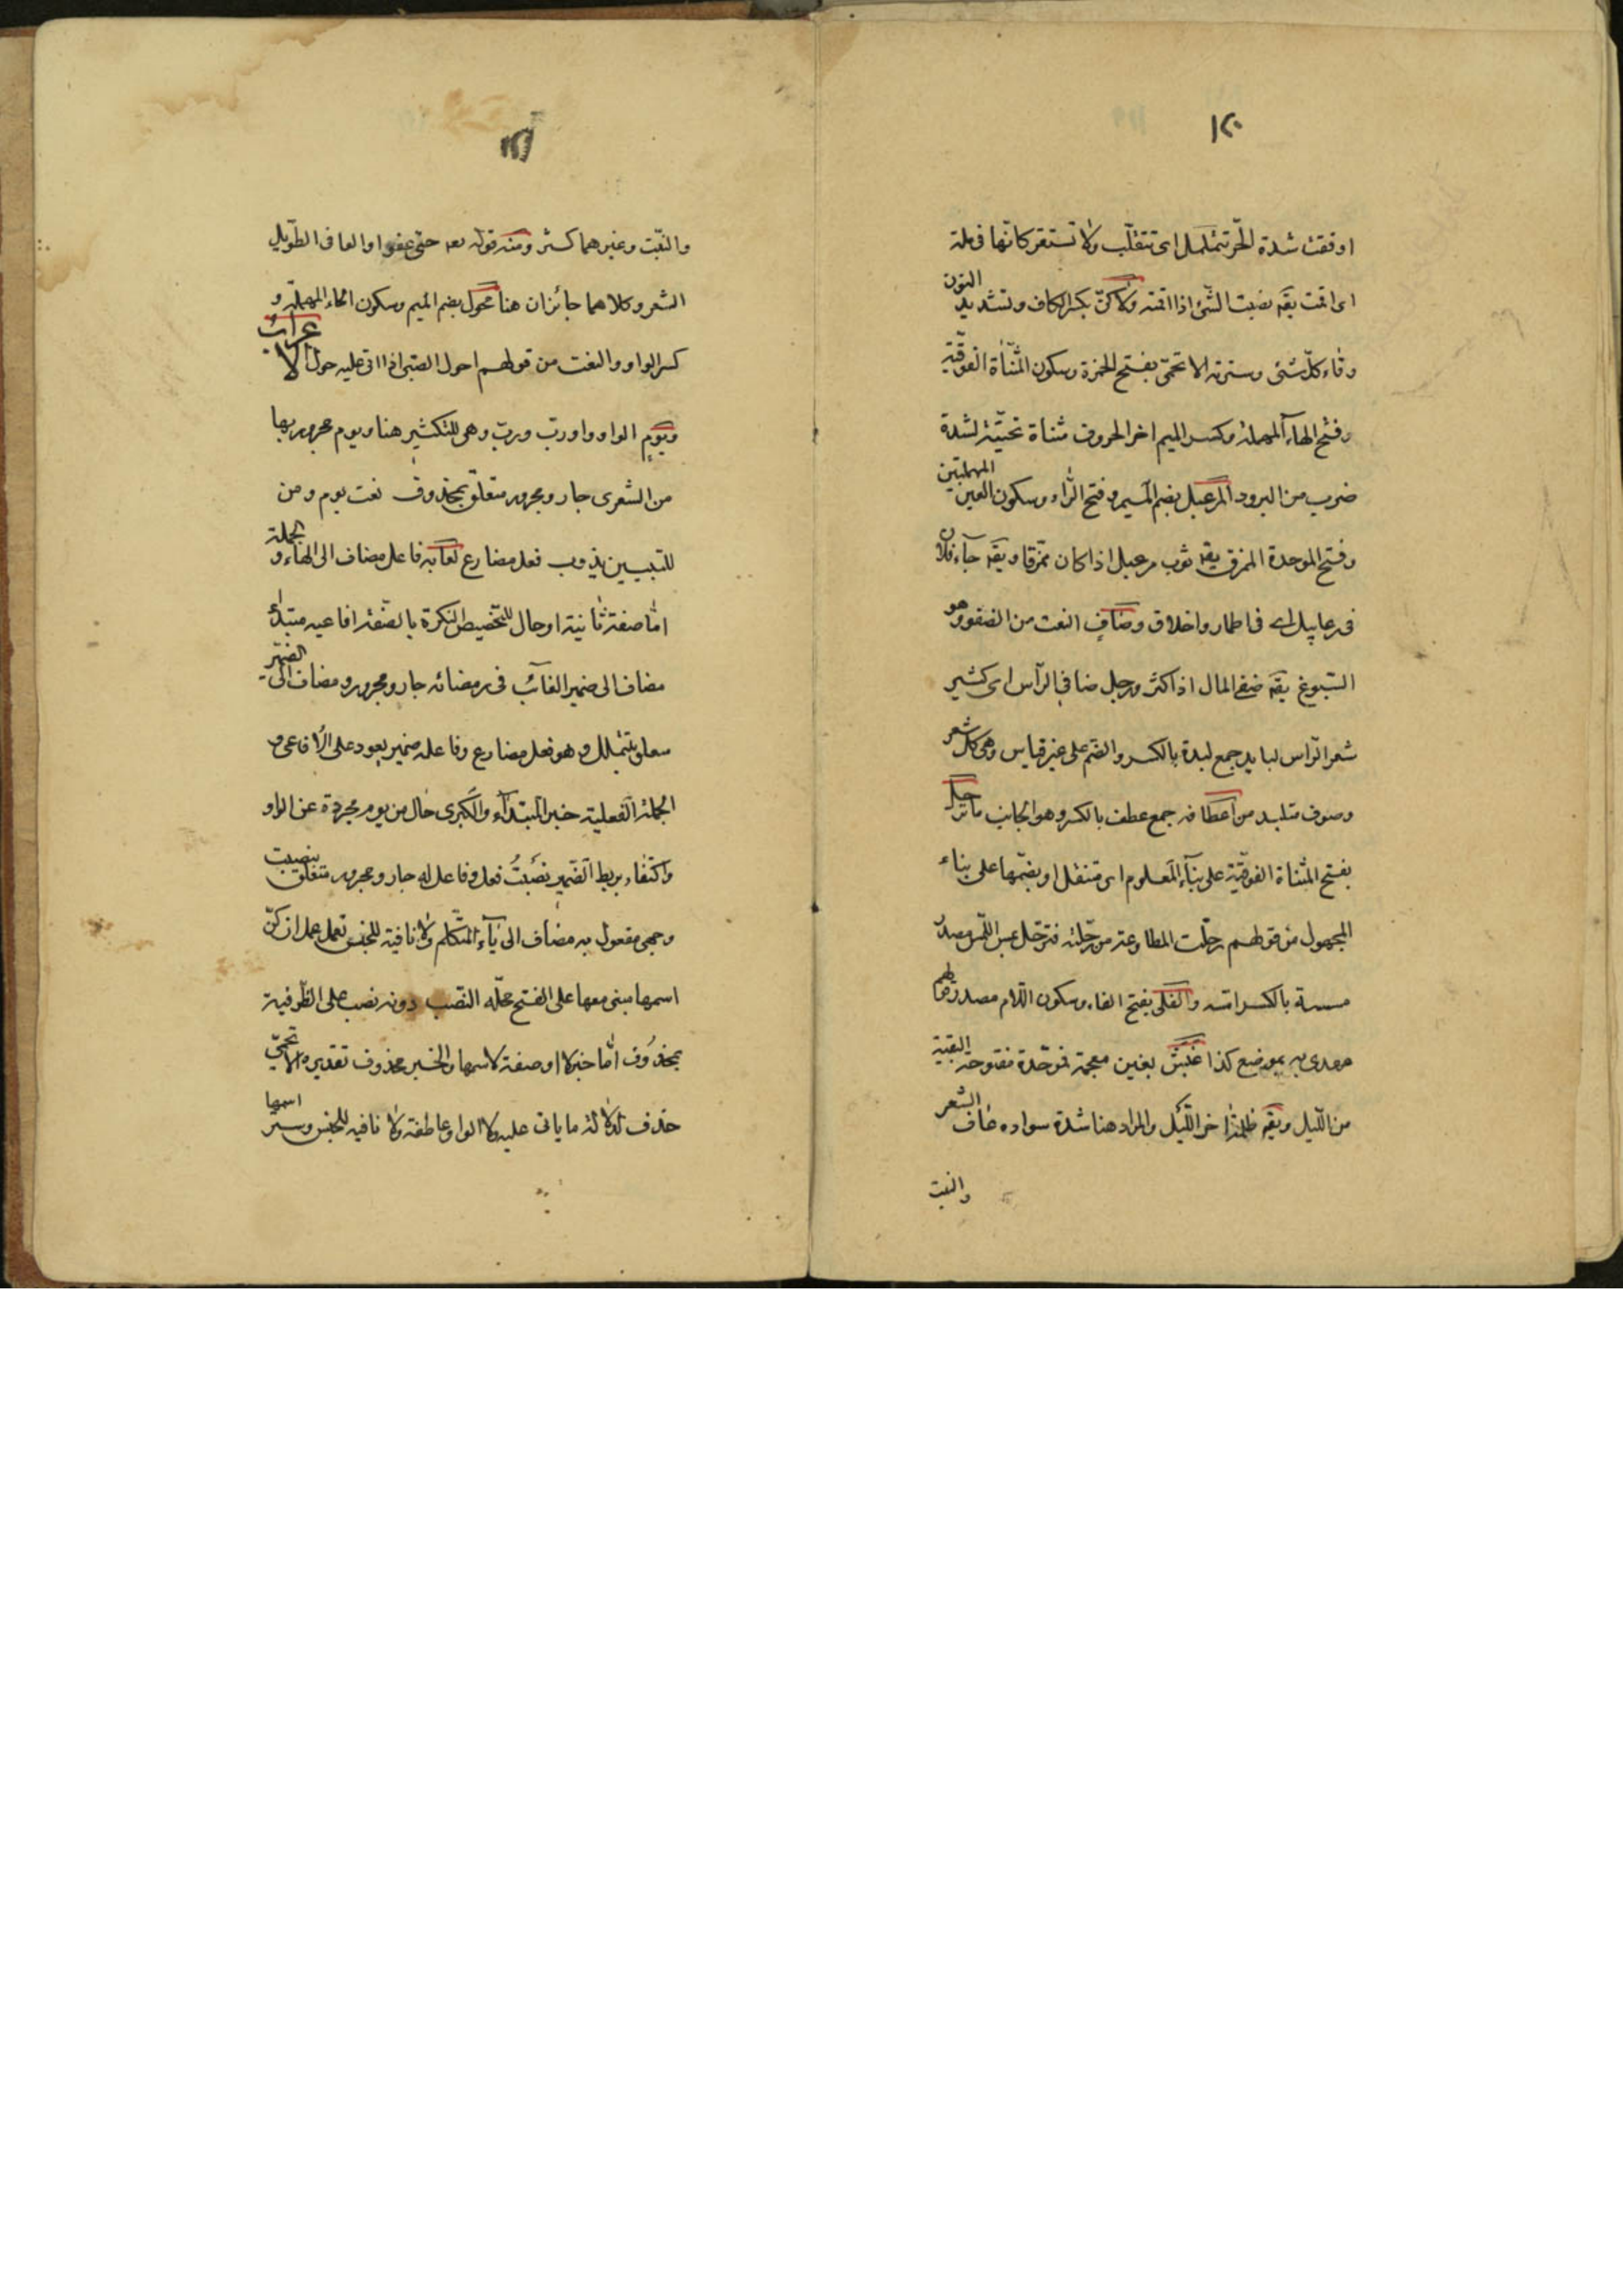 ١٢٠
او فقت شدة الحر تتململ اى تتقلّب ولا تستقر كانّها فى ملة
اى اقمت يقه نصبت الشئ اذا اقمته ولا كنّ بكسر الكاف وتشديد النون
وقاء كلّ شئى وسترته الا تحمىّ بفتح الهمزة وسكون المثنّاة الفوقيّة
وفتح الهاء المهملة وكسر الميم اخر الحروف مثناة تحتيّة لشدة
ضرب من البرود المرعبل بضم الميم وفتح الراء وسكون العين المهملتين
وفتح الموحدة الممزق يقه ثوب مرعبل اذا كان ممزقا ويقه جآء فلان
فى رعابيل اى فى اطمار واخلاق وضاف النعت من الضفو وهو
السّبوغ يقه ضفى المال اذا كثر ورجل ضافى الرآس اى كثير
شعر الرّاس لبايد جمع لبدة بالكسر والضم على غير قياس وهى كل شعر
وصوف متلبد من اعطافه جمع عطف بالكسر وهو الجانب ما ترجل
بفتح المثناة الفوقيّة على بنآء المعلوم اى متنفل او بضمّها على بناء
المجهول من قولهم رجلّت المطاوعة من رجّلته فترجّل عبس اللمس مصدر
مسسته بالكسر امسه والفلى بفتح الفاء وسكون اللام مصدر قولهم
بموضع كذا غبش بغين معجمة فموحّدة مفتوحة البقيّة
من اللّيل ويقه ظلمة اخر اللّيل والمراد هنا شدة سواده عاف الشعر
والنبت
١٢١
والنبّت وغيرهما كثر ومنه قوله تعه حتى عفوا والعافى الطّويل
الشعر وكلاهما جائزان هنا محول بضم الميم وسكون الحاء المهملة و
كسر الواو والنعت من قولهم احول الصبى اذا اتى عليه حول الاعراب
ويوم الواو واو ربّ وربّ وهى للتكثير هنا ويوم مجرور بها
من الشعرى جار ومجرور متعلق بمحذوف نعت يوم ومن
للتبيين يذوب فعل مضارع لعابه فاعل مضاف الى الهاء والجملة
امّا صفة ثانية او حال للتخصيص النكرة بالصّفة افاعيه مبتدأ
مضاف الى ضمير الغائب فى رمضائه جار ومجرور ومضاف الى الضمير
متعلق بتتململ وهو فعل مضارع وفاعله ضمير يعود على الافاعى و
الجملة الفعلية خبر المبتدآء والكبرى حال من يوم مجردة عن الواو
واكتفاء بربط الضّمير نصبتُ فعل وفاعل له جار ومجرور متعلق بنصبت
وجهى مفعول به مضاف الى يآء المتكلم ولا نافية للجنس تعمل عمل ان كنّ
اسمها مبنى معها على الفتح محلّه النّصب دونه نصب على الظّرفية
بمحذوف امّا خبر لا او صفة لاسمها والخبر محذوف تقديره الا تحمىّ
حذف لدلالة ما ياتى عليه ولا الواو عاطفة ولا نافيه للجنس وستر اسمها